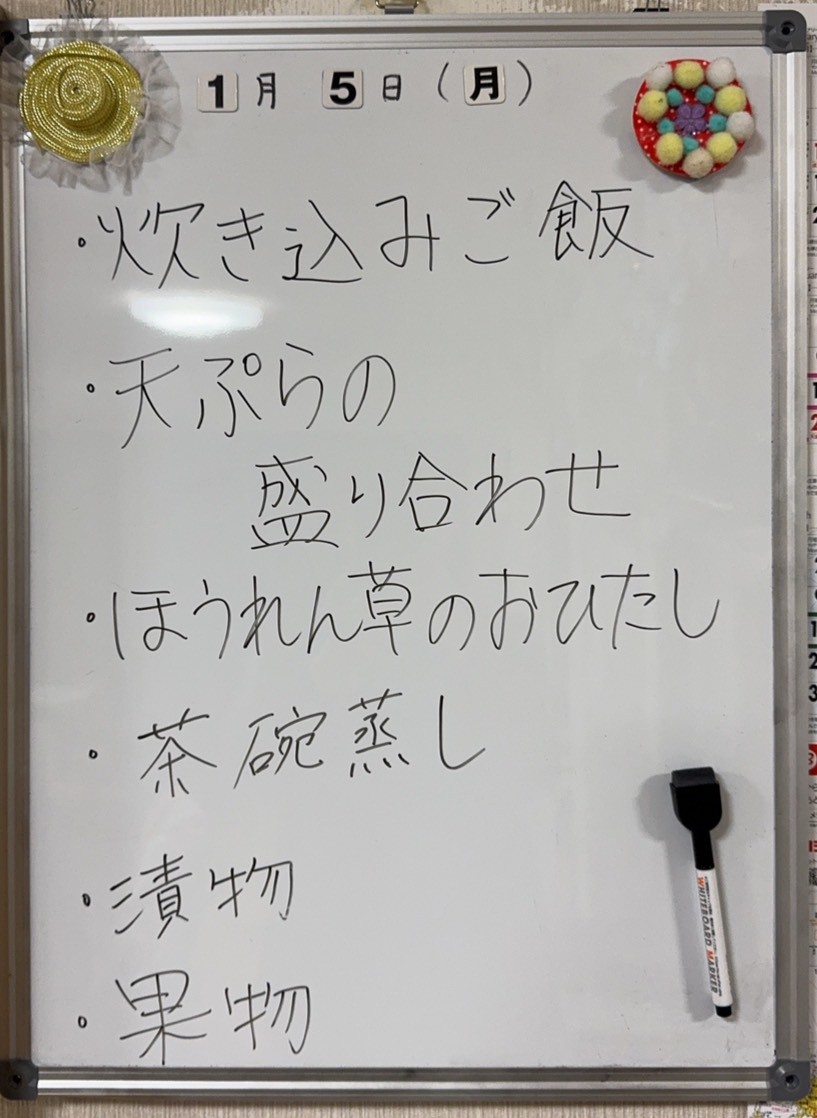 1月 5日（月）
・炊き込みご飯
・天ぷらの
盛り合わせ
・ほうれん草のおひたし
・茶碗蒸し
・漬物
・果物
WHITEBOARD MARKER